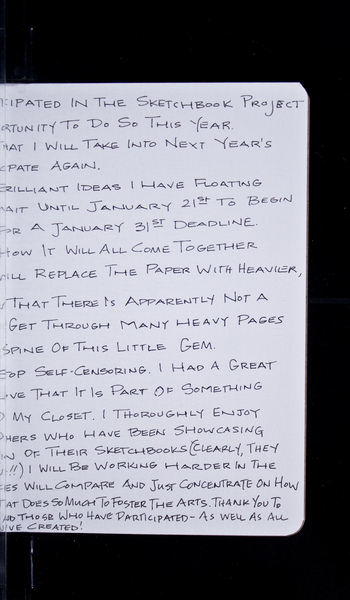 CIPATED IN THE SKETCHBOOK PROJECT
RTUNITY TO DO SO THIS YEAR.
HAT I WILL TAKE INTO NEXT YEAR'S
CPATE AGAIN.
BRILLIANT IDEAS I HAVE FLOATING
AIT UNTIL JANUARY 21ST TO BEGIN
OR A JANUARY 31ST DEADLINE.
HOW IT WILL ALL COME TOGETHER
ILL REPLACE THE PAPER WITH HEAVIER,
THAT THERE IS APPARENTLY NOT A
GET THROUGH MANY HEAVY PAGES
SPINE OF THIS LITTLE GEM.
TOP SELF-CENSORING. I HAD A GREAT
OVE THAT IT IS PART OF SOMETHING
MY CLOSET. I THOROUGHLY ENJOY
HERS WHO HAVE BEEN SHOWCASING
IN OF THEIR SKETCHBOOKS (CLEARLY, THEY
!!) I WILL BE WORKING HARDER IN THE
ES WILL COMPARE AND JUST CONCENTRATE ON HOW
AT DOES SO MUCH TO FOSTER THE ARTS. THANK YOU TO
ND THOSE WHO HAVE PARTICIPATED - AS WELL AS ALL
'VE CREATED!